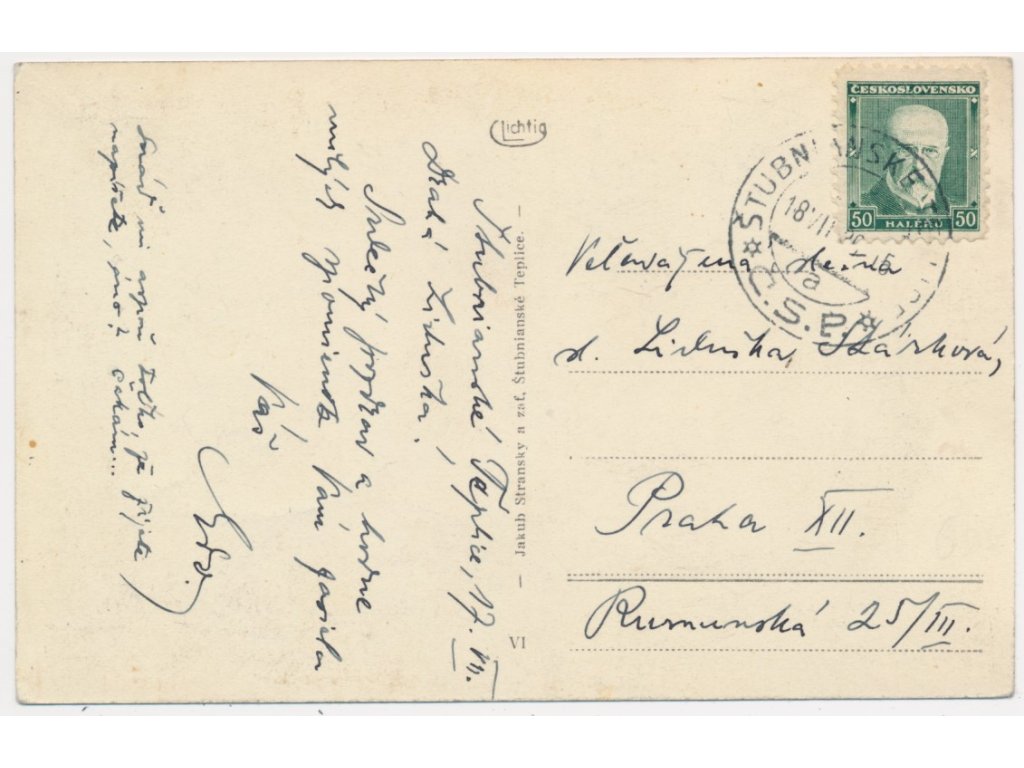 Lichtig
Štubnianské Teplice, 17. VII.
Drahá Liduška,
Srdečný pozdrav a hodne
milých vzpomienok Vám zasiela
Váš
Edo.
Snáď mi aspoň toľko, že žijete
napíšete, áno? čakám...
— Jakub Stransky a zať, Štubnianské Teplice. —
VI
ČESKOSLOVENSKO
50 HALÉŘŮ 50
ŠTUBNIANSKE
18 VII
1a
Č.S.P.
Veľavážená slečna
sl. Liduška
Praha XII.
Rumunská 25/III.